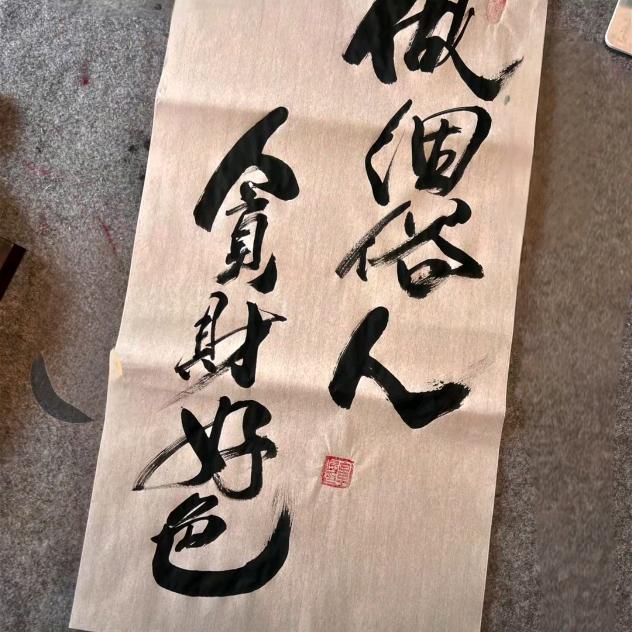 做個俗人
貪財好色